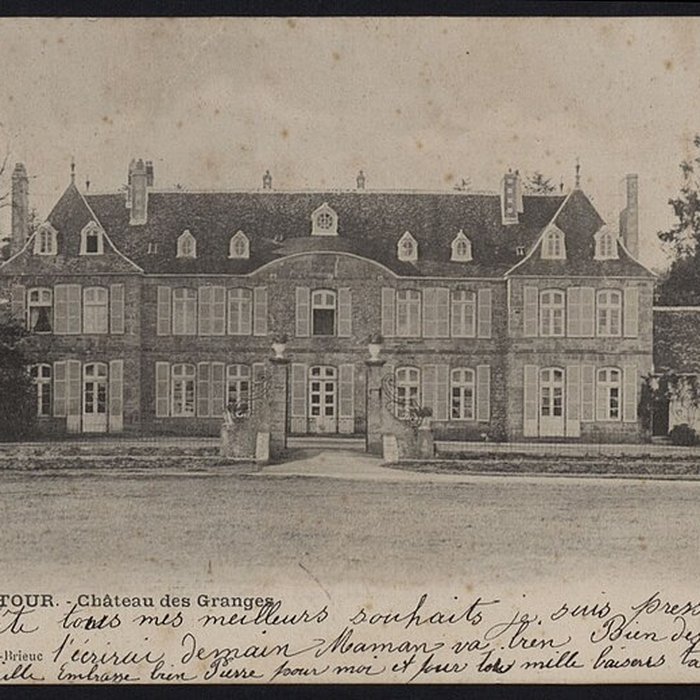 TOUR. - Château des Granges
tous mes meilleurs souhaits je suis
-Brieuc t'écrirai demain Maman va bien Bien des
Embrasse bien Pierre pour moi et pour toi mille baisers ta